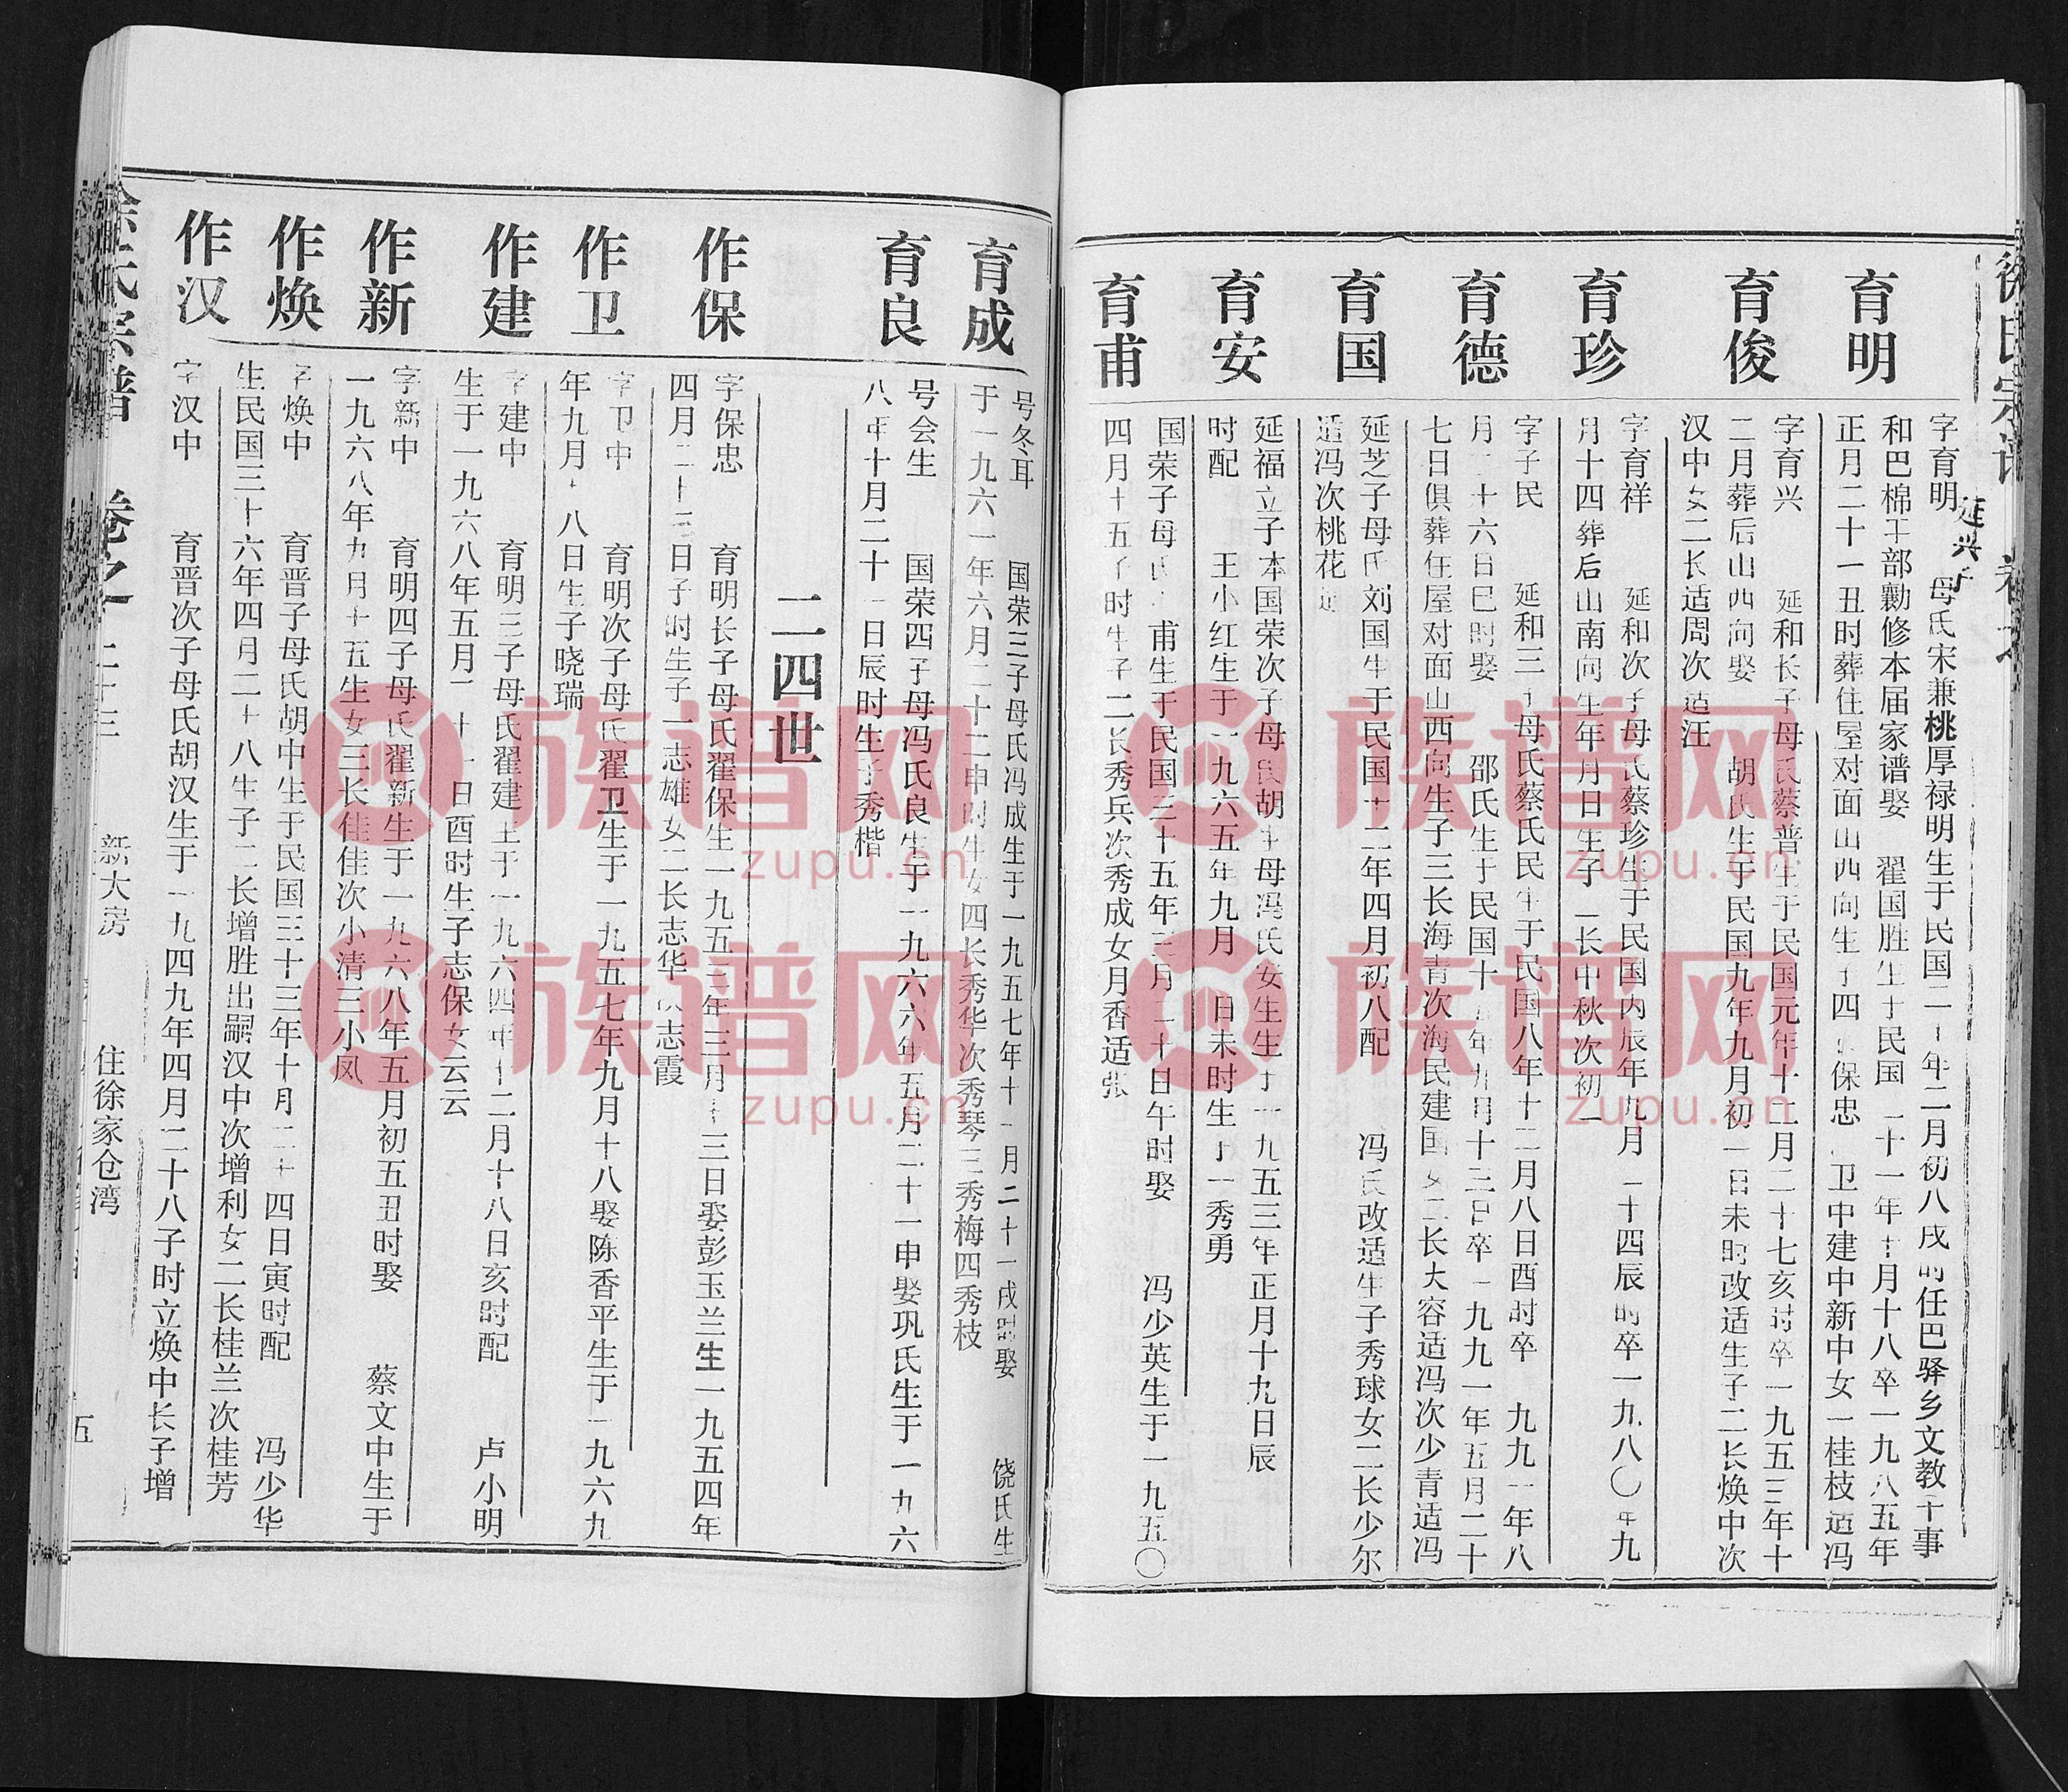 徐氏宗谱
育明
字育明 延兴子 母氏宋兼桃厚禄明生于民国二十年二月初八戌时任巴驿乡文教干事
和巴棉干部勷修本届家谱娶 翟国胜生于民国二十一年十月十八卒一九八五年
正月二十一丑时葬住屋对面山西向生子四 保忠 卫中建中新中女一桂枝适冯
育俊
字育兴 延和长子母氏蔡普生于民国元年十二月二十七亥时卒一九五三年十
二月葬后山西向娶 胡氏生于民国九年九月初一日未时改适生子二长焕中次
汉中女二长适周次适汪
育珍
字育祥 延和次子母氏蔡珍生于民国丙辰年九月二十四辰时卒一九八〇年九
月十四葬后山南向生年月日生子二长中秋次初一
育德
字子民 延和三子母氏蔡氏民生于民国八年十二月八日酉时卒一九九一年八
月二十六日巳时娶 邵氏生于民国十 年九月十三日卒一九九一年五月二十
七日俱葬住屋对面山西向生子三长海青次海民建国女二长大容适冯次少青适冯
育国
延芝子母氏刘国生于民国十二年四月初八配 冯氏改适生子秀球女二长少尔
适冯次桃花适
育安
延福立子本国荣次子母氏胡生母冯氏安生生于一九五三年正月十九日辰
时配 王小红生于一九六五年九月 日未时生子一秀勇
育甫
国荣子母氏 甫生于民国三十五年三月二十日午时娶 冯少英生于一九五〇
四月十五子时生子二长秀兵次秀成女月香适张
育成
号冬耳 国荣三子母氏冯成生于一九五七年十一月二十一戌时娶 饶氏生
于一九六一年六月二十二申时生女四长秀华次秀琴三秀梅四秀枝
育良
号会生 国荣四子母冯氏良生于一九六六年五月二十一申娶巩氏生于一九六
八年十月二十一日辰时生子秀楷
二四世
作保
字保忠 育明长子母氏翟保生一九五三年三月十三日娶彭玉兰生一九五四年
四月二十三日子时生子一志雄女二长志华次志霞
作卫
字卫中 育明次子母氏翟卫生于一九五七年九月十八娶陈香平生于一九六九
年九月十八日生子晓瑞
作建
字建中 育明三子母氏翟建生于一九六四年十二月十八日亥时配 卢小明
生于一九六八年五月二十一日酉时生子志保女云云
作新
字新中 育明四子母氏翟新生于一九六八年五月初五丑时娶 蔡文中生于
一九六八年九月十五生女三长佳佳次小清三小凤
作焕
字焕中 育晋子母氏胡中生于民国三十三年十月二十四日寅时配 冯少华
生民国三十六年四月二十八生子二长增胜出嗣汉中次增利女二长桂兰次桂芳
作汉
字汉中 育晋次子母氏胡汉生于一九四九年四月二十八子时立焕中长子增
徐氏宗谱 卷之二十三 新大房 住徐家仓湾 五
族谱网
zupu.cn
族谱网
zupu.cn
族谱网
zupu.cn
族谱网
zupu.cn